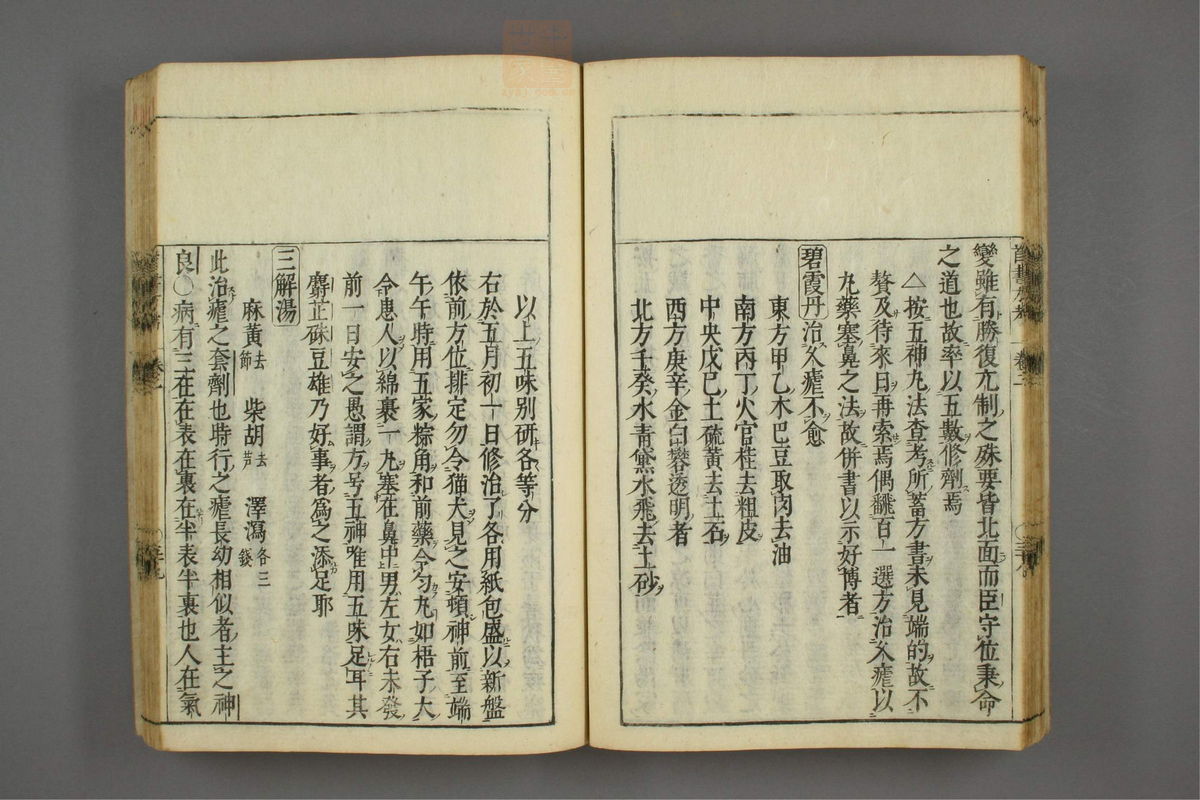 變雖有勝復亢制之殊要皆北面而臣守位秉命
之道也故率以五數修劑焉
△按五神丸法查考所蓄方書未見端的故不
贅及待來日再索焉偶飜百一選方治久瘧以
丸藥塞鼻之法故併書以示好博者
碧霞丹治久瘧不愈
東方甲乙木巴豆取肉去油
南方丙丁火官桂去粗皮
中央戊巳土硫黃去土石
西方庚辛金白礬透明者
北方壬癸水青黛水飛去土砂
以上五味别研各等分
右於五月初一日修治了各用紙包盛以新盤
依前方位排定勿令猫犬見之安頓神前至端
午午時用五家粽角和前藥令匀丸如梧子大
令患人以綿裹一丸塞在鼻中男左女右未發
前一日安之愚謂方号五神唯用五味足耳其
麝芷硃豆雄乃好事者爲之添足耶
三解湯
麻黃去節 柴胡去芦 澤瀉各三錢
此治瘧之套劑也時行之瘧長幼相似者主之神
良○病有三在在表在裏在半表半裏也人在氣